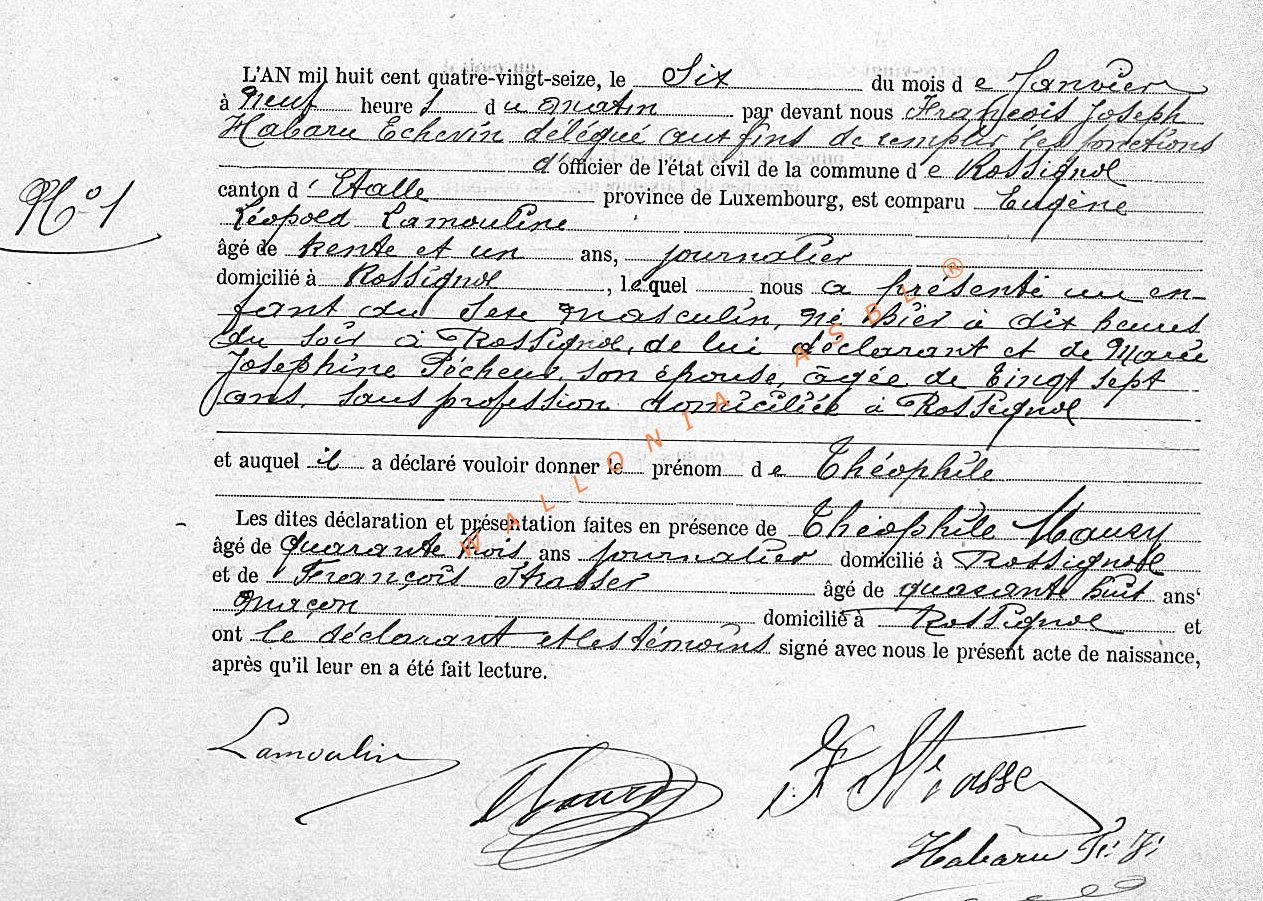 L'AN mil huit cent quatre-vingt-seize, le Six du mois de Janvier
à neuf heures du matin par devant nous François Joseph
Habaru Echevin délégué aux fins de remplir les fonctions
d'officier de l'état civil de la commune de Rossignol
canton d'Etalle province de Luxembourg, est comparu Eugène
N° 1
Léopold Lamouline
âgé de trente et un ans, journalier
domicilié à Rossignol, lequel nous a présenté un en-
fant du sexe masculin, né hier à dix heures
du soir à Rossignol, de lui déclarant et de Marie
Joséphine Pécheur, son épouse, âgée de vingt sept
ans, sans profession domiciliée à Rossignol
et auquel il a déclaré vouloir donner le prénom de Théophile
Les dites déclaration et présentation faites en présence de Théophile
âgé de quarante trois ans journalier domicilié à Rossignol
et de François Strasser âgé de quarante huit ans
maçon domicilié à Rossignol et
ont le déclarant et les témoins signé avec nous le présent acte de naissance,
après qu'il leur en a été fait lecture.
Lamoulin
F Strasser
Habaru
WALLONIA ASBL ®